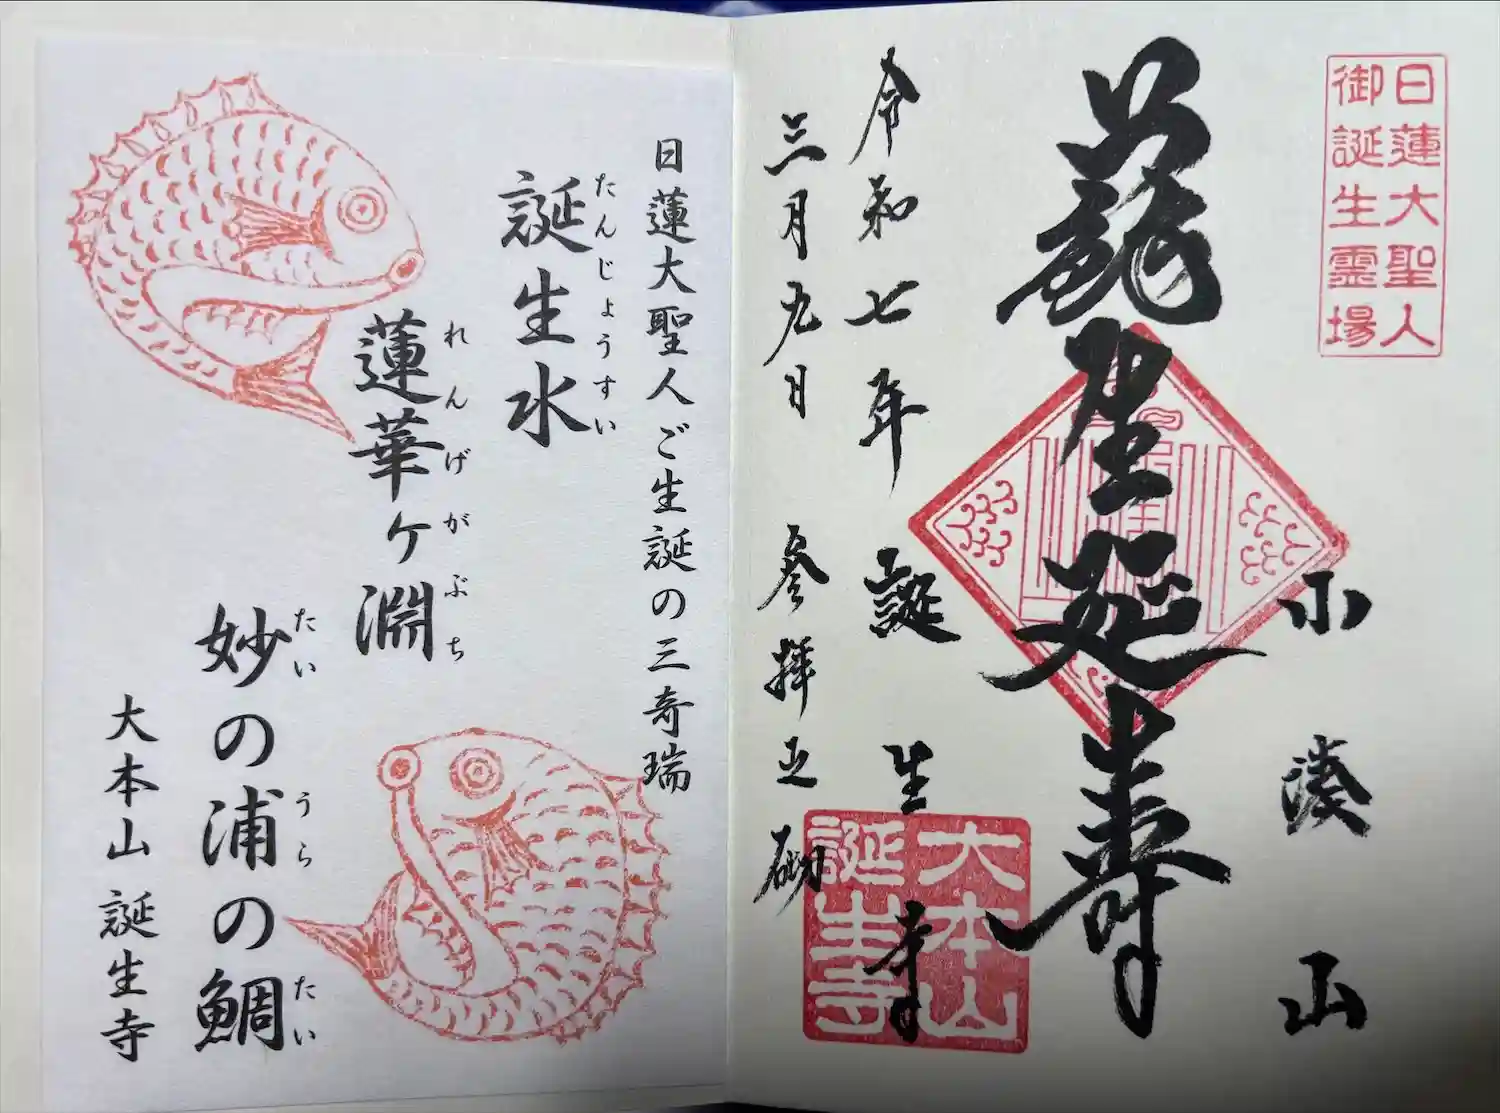 日蓮大聖人
御誕生霊場
小湊山
蘇生延壽
令和七年 誕生寺
三月九日 参拝之砌
大本山
誕生寺
日蓮大聖人ご生誕の三奇瑞
たんじょうすい
誕生水
れんげがぶち
蓮華ケ淵
たい うら たい
妙の浦の鯛
大本山 誕生寺